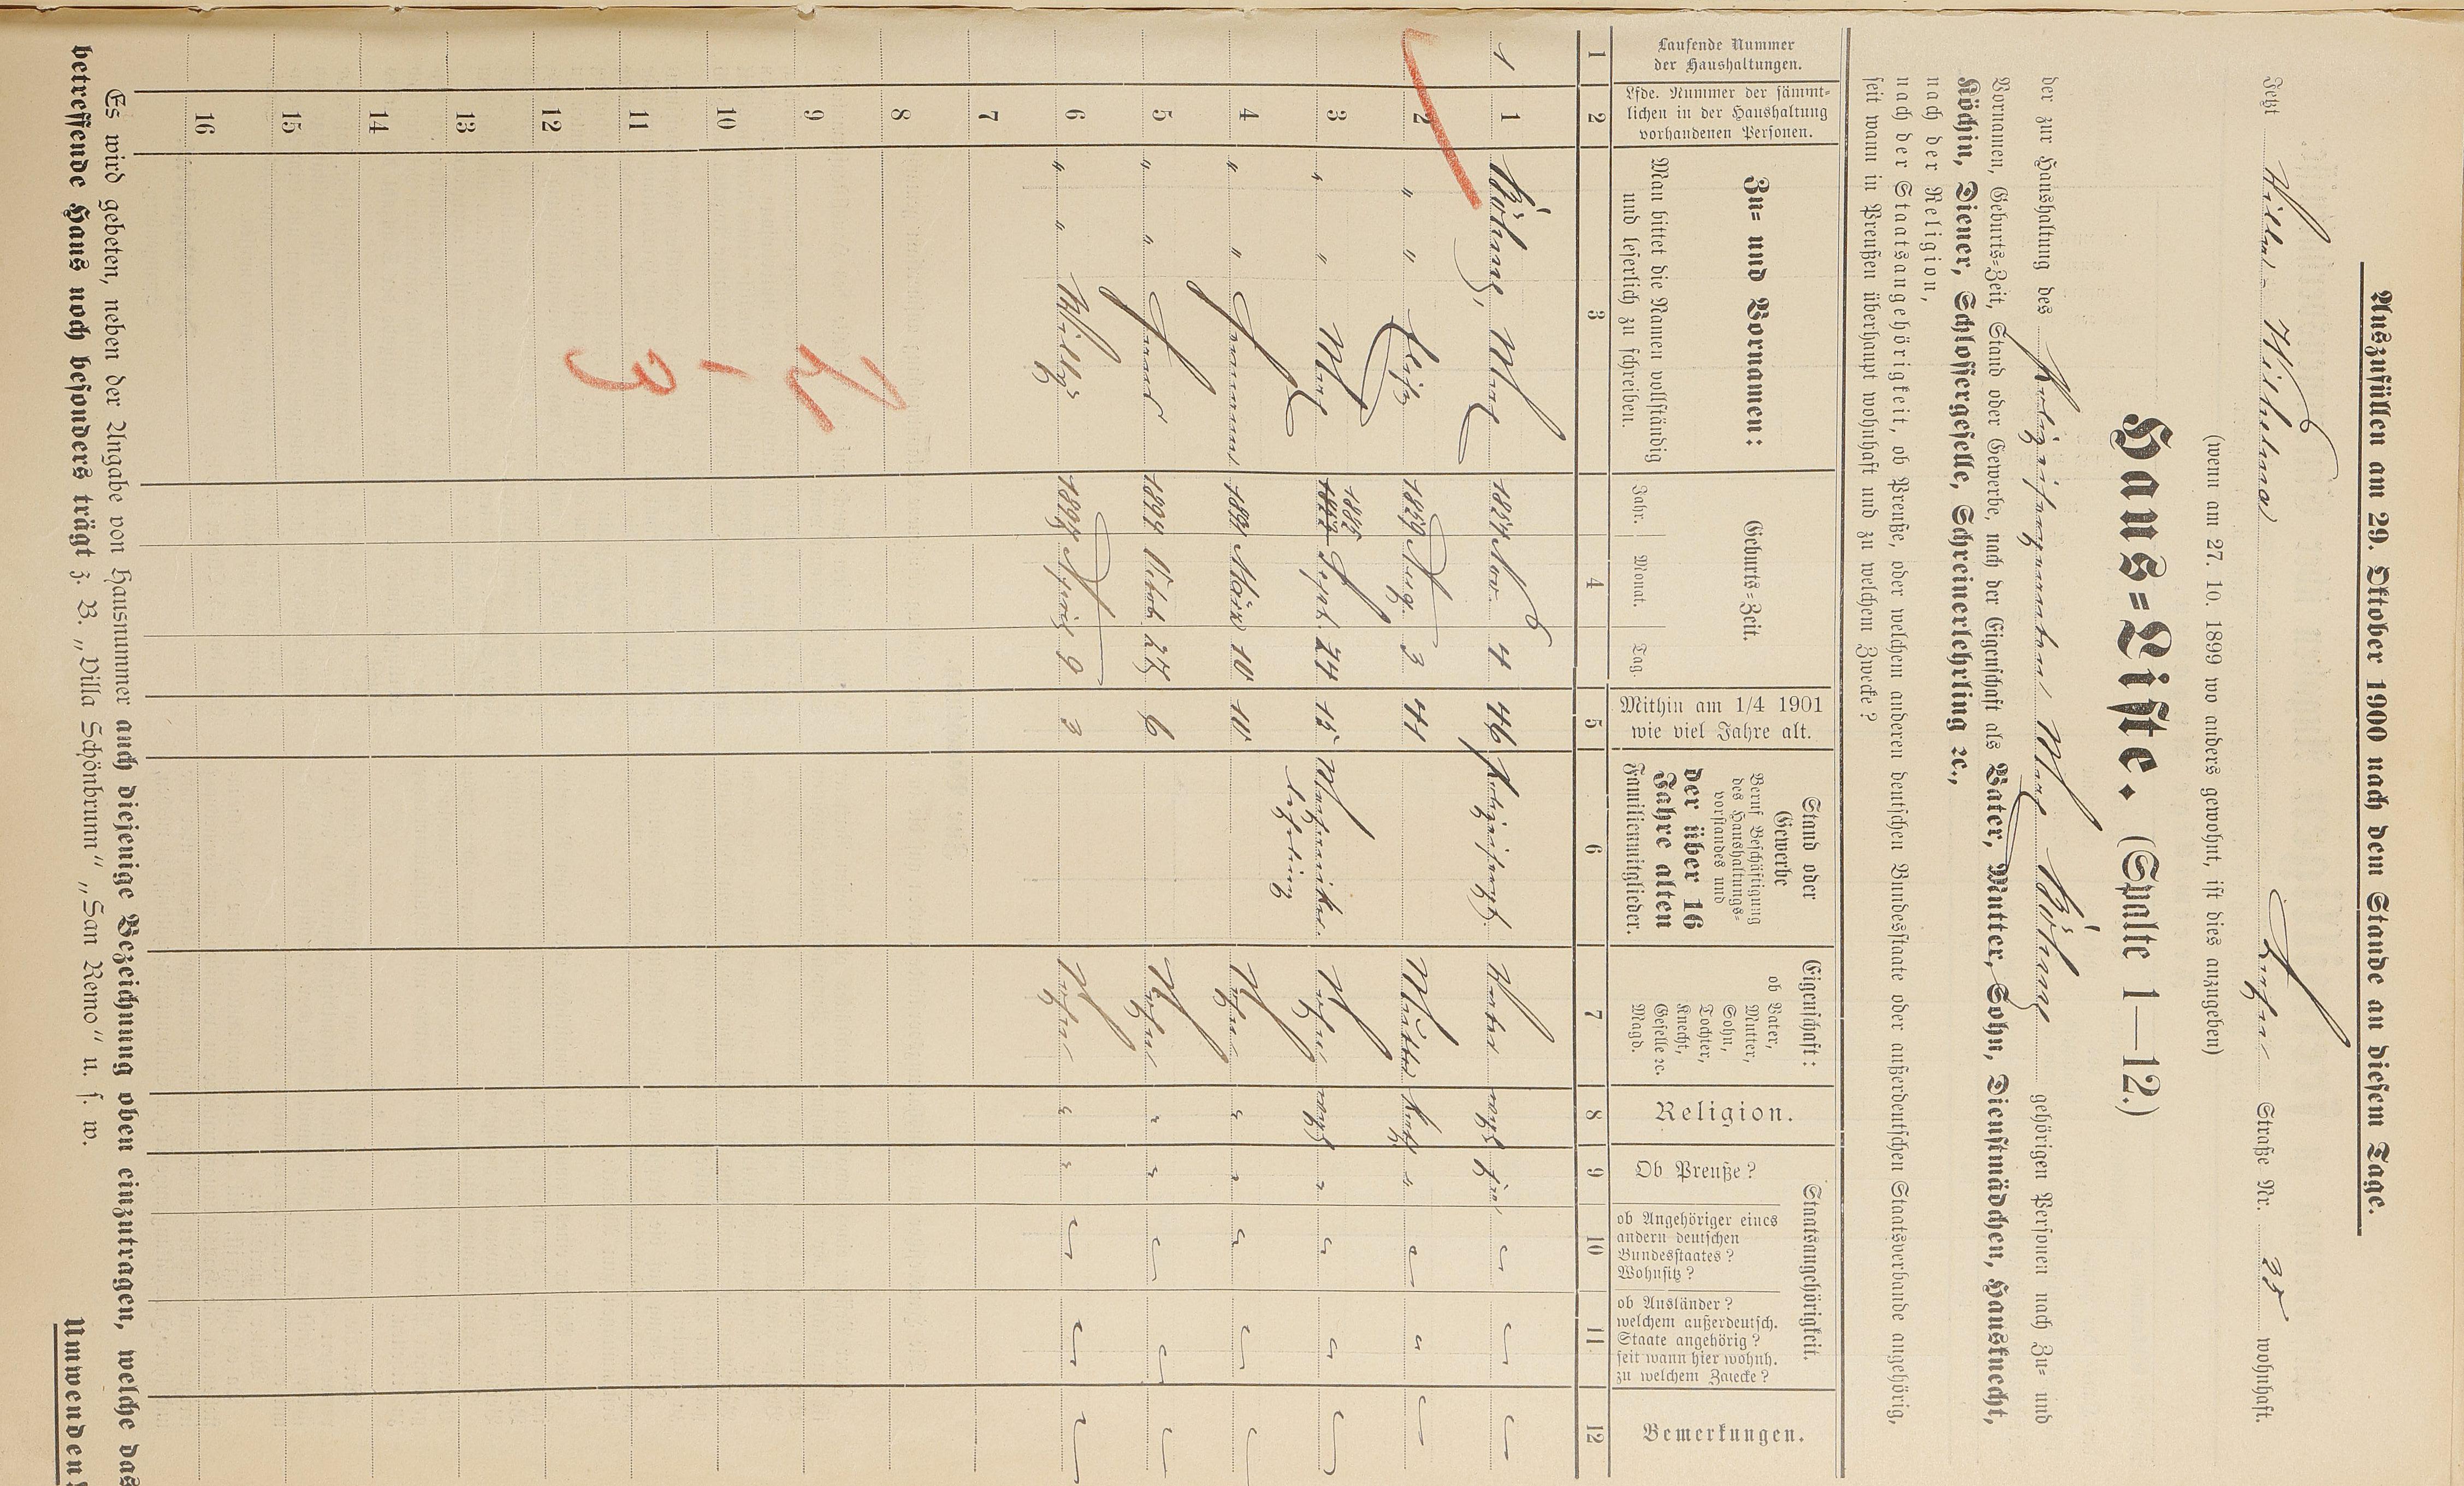 Auszufüllen am 29. Oktober 1900 nach dem Stande an diesem Tage.
Jetzt Straße Nr. 35 wohnhaft.
(wenn am 27. 10. 1899 wo anders gewohnt, ist dies anzugeben)
Haus-Liste. (Spalte 1—12.)
der zur Haushaltung des Max gehörigen Personen nach Zu- und
Vornamen, Geburts-Zeit, Stand oder Gewerbe, nach der Eigenschaft als Vater, Mutter, Sohn, Dienstmädchen, Hausknecht,
Köchin, Diener, Schlossergeselle, Schreinerlehrling ꝛc.,
nach der Religion,
nach der Staatsangehörigkeit, ob Preuße, oder welchen anderen deutschen Bundesstaate oder außerdeutschen Staatsverbande angehörig,
seit wann in Preußen überhaupt wohnhaft und zu welchem Zwecke?
Laufende Nummer der Haushaltungen.
Lfde. Nummer der sämmtlichen in der Haushaltung vorhandenen Personen.
Zu- und Vornamen:
Man bittet die Namen vollständig und leserlich zu schreiben.
Geburts-Zeit.
Jahr. Monat. Tag.
Mithin am 1/4 1901 wie viel Jahre alt.
Stand oder Gewerbe
Beruf Beschäftigung des Haushaltungs-vorstandes und
der über 16 Jahre alten
Familienmitglieder.
Eigenschaft:
ob Vater, Mutter, Sohn, Tochter, Knecht, Geselle ꝛc. Magd.
Religion.
Staatsangehörigkeit.
Ob Preuße?
ob Angehöriger eines andern deutschen Bundesstaates? Wohnsitz?
ob Ausländer? welchem außerdeutsch. Staate angehörig? seit wann hier wohnh. zu welchem Zwecke?
Bemerkungen.
1 2 3 4 5 6 7 8 9 10 11 12
1 1 Max 1854 Nov. 4 46 Vater evgl.
2 " " 1859 Aug. 3 41 Mutter kath. "
3 " " Max 1885 Sept. 24 15 Mechaniker-lehrling Sohn evgl. "
4 " " Hermann 1891 März 10 10 Sohn " "
5 " " 1894 Octob. 27 6 Sohn " "
6 " " 1897 April 9 3 Sohn " "
7
8
9
10
11
12
13
14
15
16
Es wird gebeten, neben der Angabe von Hausnummer auch diejenige Bezeichnung oben einzutragen, welche das
betreffende Haus noch besonders trägt z. B. „Villa Schönbrunn" „San Remo" u. s. w.
Umwenden!